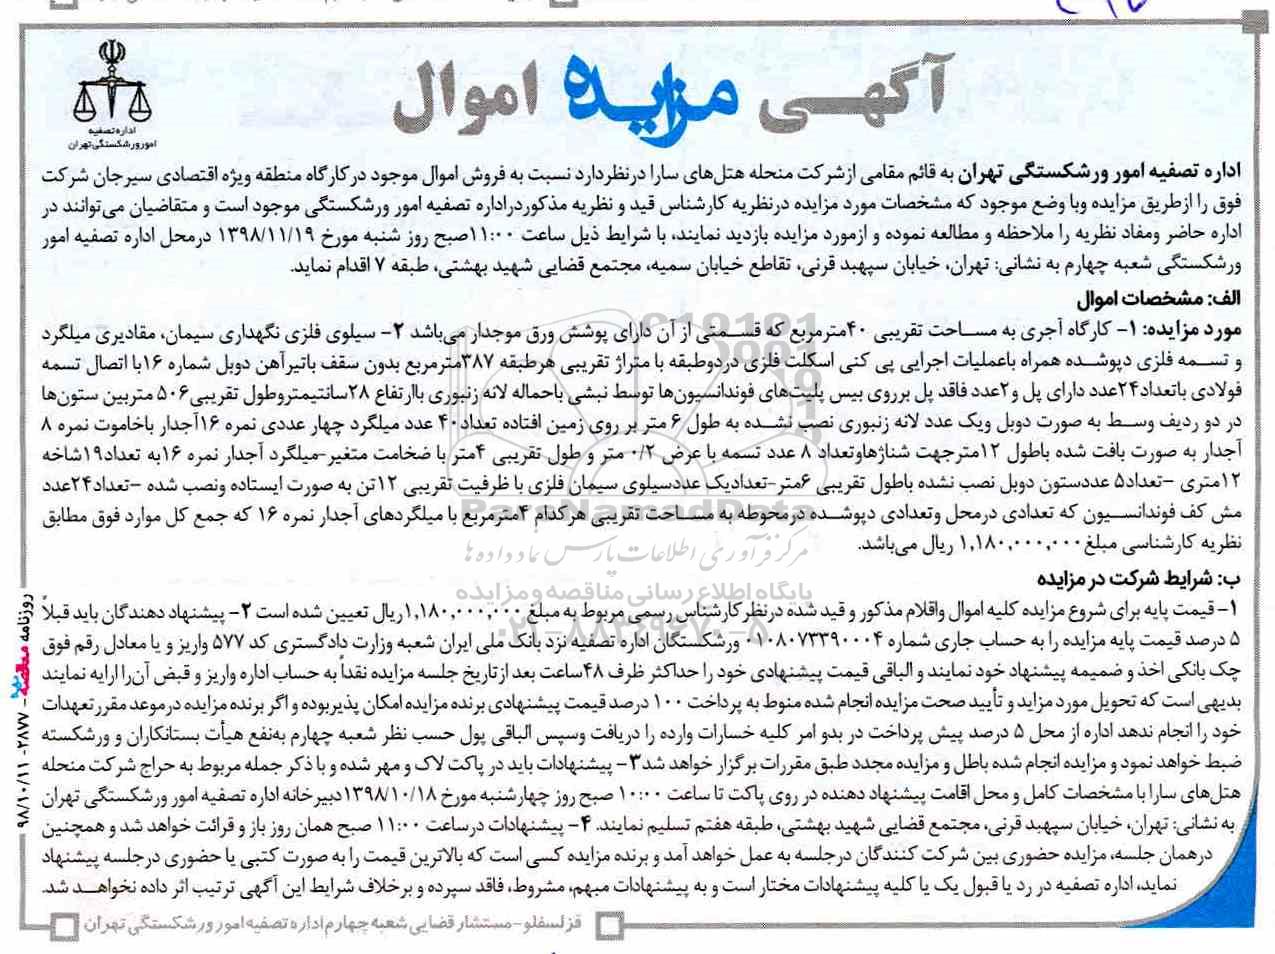 آگهی مزایده اموال
اداره تصفیه
امور ورشکستگی تهران
اداره تصفیه امور ورشکستگی تهران به قائم مقامی ازشرکت منحله هتل‌های سارا درنظردارد نسبت به فروش اموال موجود درکارگاه منطقه ویژه اقتصادی سیرجان شرکت
فوق را ازطریق مزایده وبا وضع موجود که مشخصات مورد مزایده درنظریه کارشناس قید و نظریه مذکوردراداره تصفیه امور ورشکستگی موجود است و متقاضیان می‌توانند در
اداره حاضر ومفاد نظریه را ملاحظه و مطالعه نموده و ازمورد مزایده بازدید نمایند، با شرایط ذیل ساعت ۱۱:۰۰صبح روز شنبه مورخ ۱۳۹۸/۱۱/۱۹ درمحل اداره تصفیه امور
ورشکستگی شعبه چهارم به نشانی: تهران، خیابان سپهبد قرنی، تقاطع خیابان سمیه، مجتمع قضایی شهید بهشتی، طبقه ۷ اقدام نماید.
الف: مشخصات اموال
مورد مزایده: ۱- کارگاه آجری به مساحت تقریبی ۴۰مترمربع که قسمتی از آن دارای پوشش ورق موجدار می‌باشد ۲- سیلوی فلزی نگهداری سیمان، مقادیری میلگرد
و تسمه فلزی دپوشده همراه باعملیات اجرایی پی کنی اسکلت فلزی دردوطبقه با متراژ تقریبی هرطبقه ۳۸۷مترمربع بدون سقف باتیرآهن دوبل شماره ۱۶با اتصال تسمه
فولادی باتعداد۲۴عدد دارای پل و۲عدد فاقد پل برروی بیس پلیت‌های فوندانسیون‌ها توسط نبشی باحماله لانه زنبوری باارتفاع ۲۸سانتیمتروطول تقریبی۵۰۶ متربین ستون‌ها
در دو ردیف وسط به صورت دوبل ویک عدد لانه زنبوری نصب نشده به طول ۶ متر بر روی زمین افتاده تعداد۴۰ عدد میلگرد چهار عددی نمره ۱۶آجدار باخاموت نمره ۸
آجدار به صورت بافت شده باطول ۱۲مترجهت شناژهاوتعداد ۸ عدد تسمه با عرض ۰/۲ متر و طول تقریبی ۴متر با ضخامت متغیر-میلگرد آجدار نمره ۱۶به تعداد۱۹شاخه
۱۲متری -تعداد۵ عددستون دوبل نصب نشده باطول تقریبی ۶متر-تعدادیک عددسیلوی سیمان فلزی با ظرفیت تقریبی ۱۲تن به صورت ایستاده ونصب شده -تعداد۲۴عدد
مش کف فوندانسیون که تعدادی درمحل وتعدادی دپوشده درمحوطه به مساحت تقریبی هرکدام ۴مترمربع با میلگردهای آجدار نمره ۱۶ که جمع کل موارد فوق مطابق
نظریه کارشناسی مبلغ۱,۱۸۰,۰۰۰,۰۰۰ ریال می‌باشد.
ParsNamadData
مرکز فرآوری اطلاعات پارس نماد داده‌ها
پایگاه اطلاع رسانی مناقصه و مزایده
ب: شرایط شرکت در مزایده
۱- قیمت پایه برای شروع مزایده کلیه اموال واقلام مذکور و قید شده درنظر کارشناس رسمی مربوط به مبلغ ۱,۱۸۰,۰۰۰,۰۰۰ریال تعیین شده است ۲- پیشنهاد دهندگان باید قبلاً
۵ درصد قیمت پایه مزایده را به حساب جاری شماره ۰۱۰۸۰۷۳۳۹۰۰۰۴ ورشکستگان اداره تصفیه نزد بانک ملی ایران شعبه وزارت دادگستری کد ۵۷۷ واریز و یا معادل رقم فوق
چک بانکی اخذ و ضمیمه پیشنهاد خود نمایند و الباقی قیمت پیشنهادی خود را حداکثر ظرف ۴۸ساعت بعد ازتاریخ جلسه مزایده نقداً به حساب اداره واریز و قبض آن‌را ارایه نمایند
بدیهی است که تحویل مورد مزاید و تأیید صحت مزایده انجام شده منوط به پرداخت ۱۰۰ درصد قیمت پیشنهادی برنده مزایده امکان پذیربوده و اگر برنده مزایده درموعد مقررتعهدات
خود را انجام ندهد اداره از محل ۵ درصد پیش پرداخت در بدو امر کلیه خسارات وارده را دریافت وسپس الباقی پول حسب نظر شعبه چهارم به‌نفع هیأت بستانکاران و ورشکسته
ضبط خواهد نمود و مزایده انجام شده باطل و مزایده مجدد طبق مقررات برگزار خواهد شد۳- پیشنهادات باید در پاکت لاک و مهر شده و با ذکر جمله مربوط به حراج شرکت منحله
هتل‌های سارا با مشخصات کامل و محل اقامت پیشنهاد دهنده در روی پاکت تا ساعت ۱۰:۰۰ صبح روز چهارشنبه مورخ ۱۳۹۸/۱۰/۱۸دبیرخانه اداره تصفیه امور ورشکستگی تهران
به نشانی: تهران، خیابان سپهبد قرنی، مجتمع قضایی شهید بهشتی، طبقه هفتم تسلیم نمایند. ۴- پیشنهادات درساعت ۱۱:۰۰ صبح همان روز باز و قرائت خواهد شد و همچنین
درهمان جلسه، مزایده حضوری بین شرکت کنندگان درجلسه به عمل خواهد آمد و برنده مزایده کسی است که بالاترین قیمت را به صورت کتبی یا حضوری درجلسه پیشنهاد
نماید، اداره تصفیه در رد یا قبول یک یا کلیه پیشنهادات مختار است و به پیشنهادات مبهم، مشروط، فاقد سپرده و برخلاف شرایط این آگهی ترتیب اثر داده نخواهد شد.
قزلسفلو-مستشار قضایی شعبه چهارم اداره تصفیه امور ورشکستگی تهران
روزنامه مناقصه مزایده - ۲۸۷۷- ۹۸/۱۰/۱۱